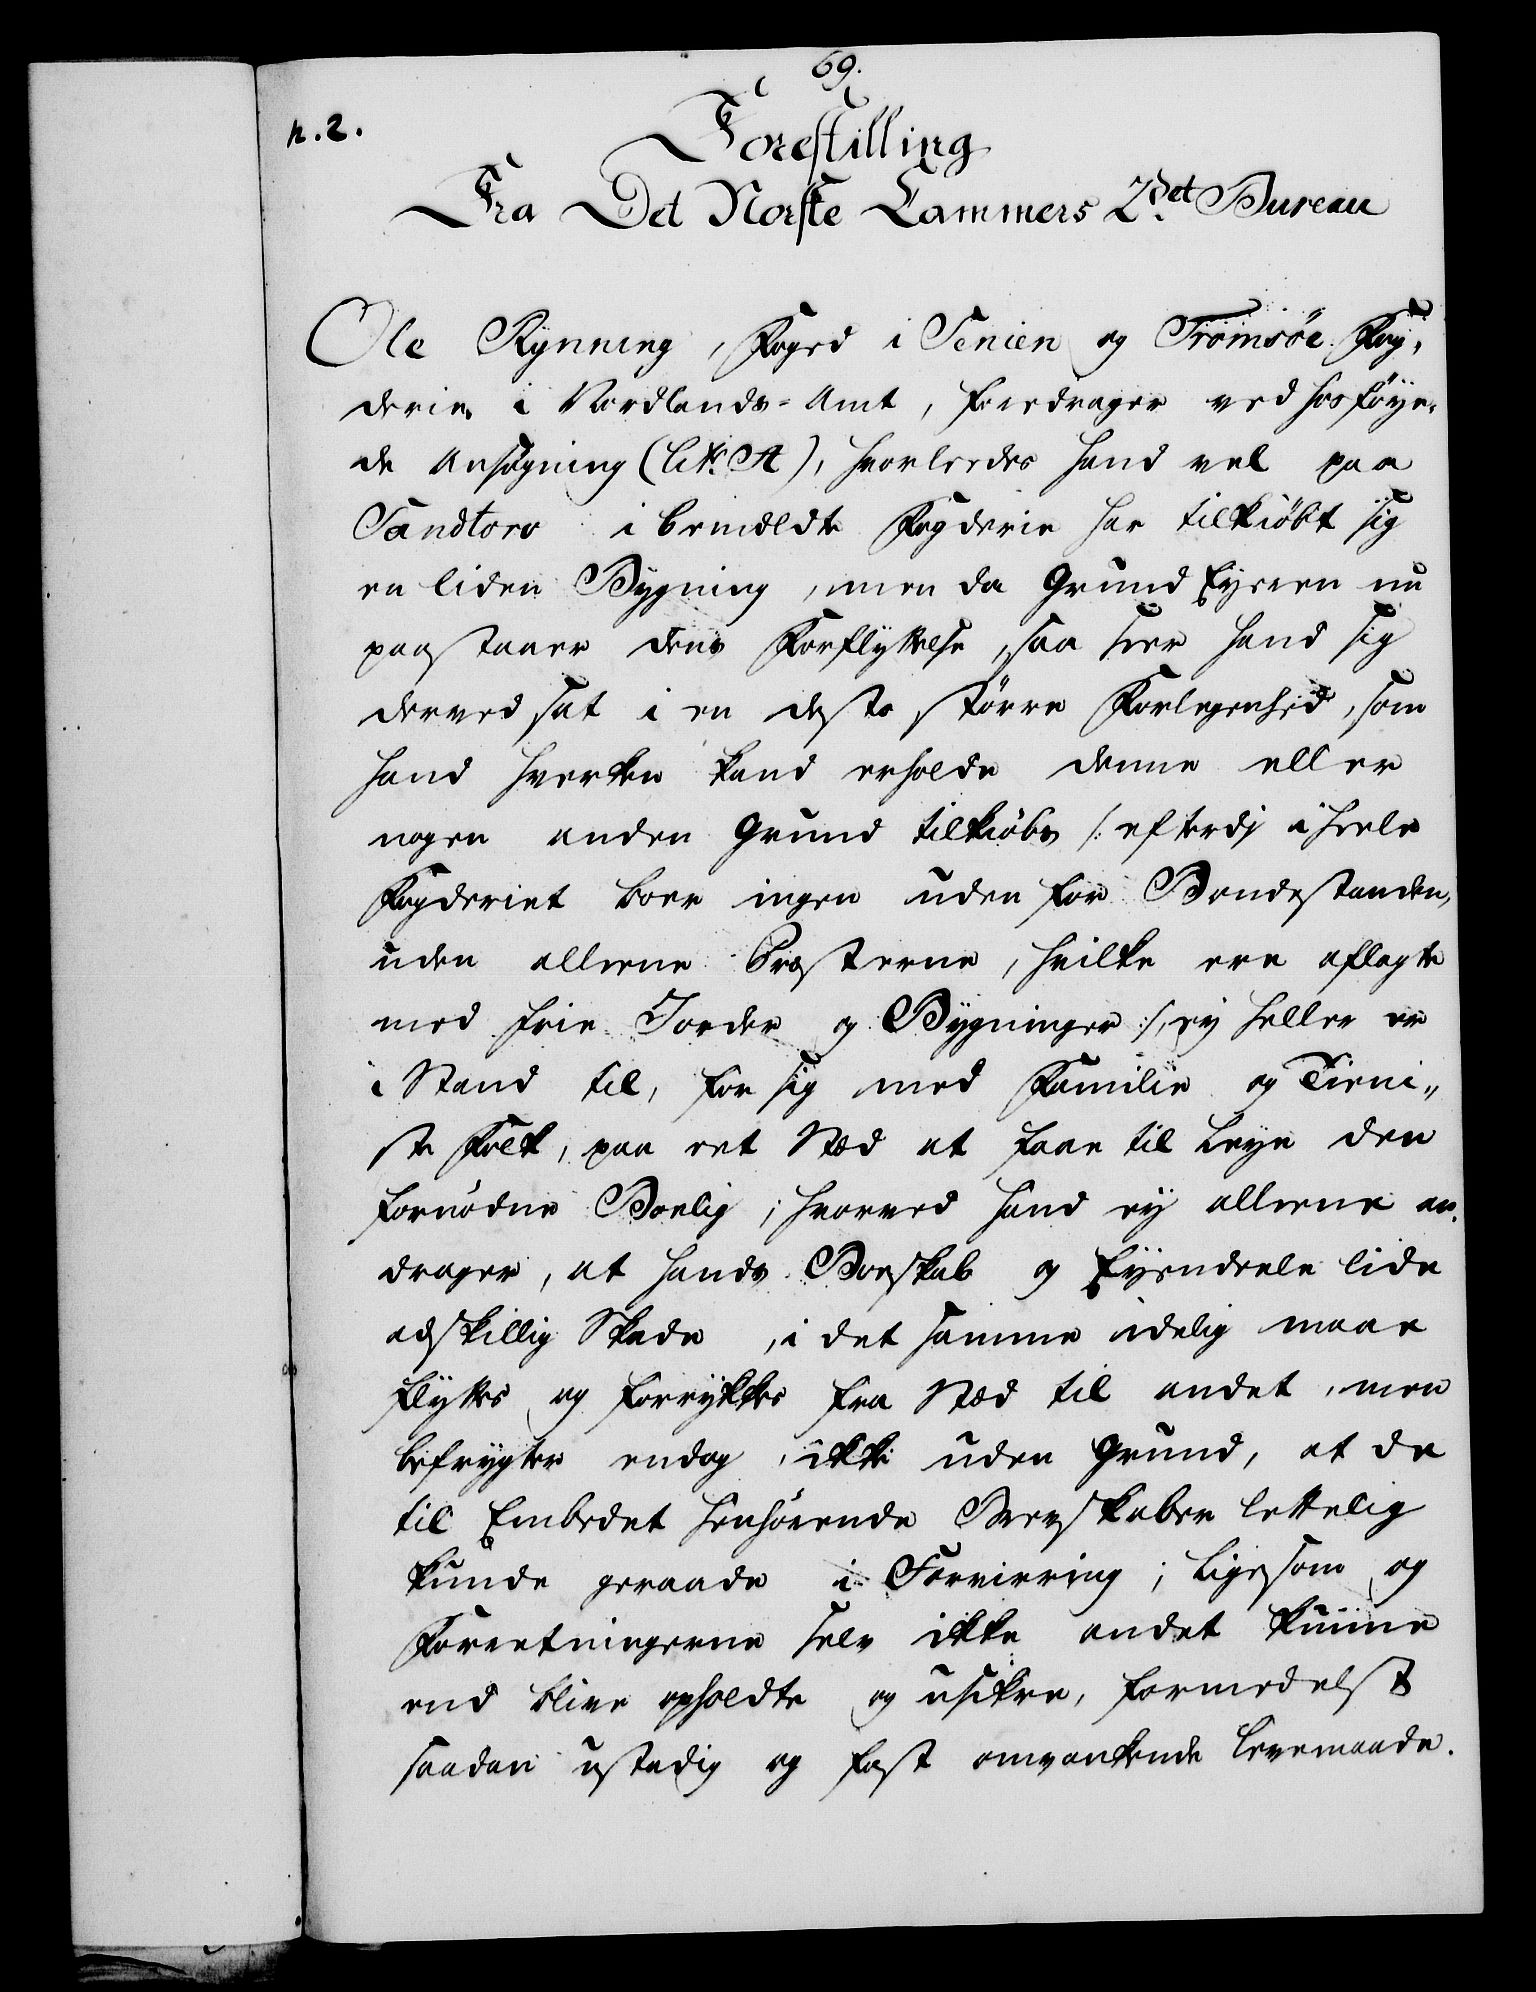 69.
n. 2.
Forestilling
Fra Det Norske Cammers 2det Bureau
Ole Rynning, Foged i Senien og Tromsöe Fog-
derie i Nordlands-Amt, foredrager ved hosföyen-
de Ansögning (Litr. A), hvorledes hand vel paa
Sandtorv i bemeldte Fogderie har tilkiöbt sig
en liden Bygning, men da Grund Eyeren nu
paastaaer dens Forflyttelse, saa seer hand sig
derved sat i en desto större Forlegenhed, som
hand hverken kand erholde denne eller
nogen anden Grund tilkiöbs /: efterdj i heele
Fogderiet boer ingen uden for Bondestanden,
uden alleene Præsterne, hvilke ere aflagte
med frie Jorder og Bygninger :/, ej heller er
i Stand til, for sig med Familie og Tieni-
ste Folk, paa eet Stæd at faae til Leye den
fornödne Boelig; hvorved hand ej alleene an-
drager, at hands Boeskab og Eyendeele lide
adskillig Skade, i det samme idelig maae
flyttes og forrykkes fra Stæd til andet, men
befrygter endog, ikke uden Grund, at de
til Embedet henhörende Brevskaber lettelig
kunde geraade i Forvirring; ligesom og
Forretningerne selv ikke andet kunne
end blive opholdte og usikre, formedelst
saadan ustadig og fast omvankende Levemaade.